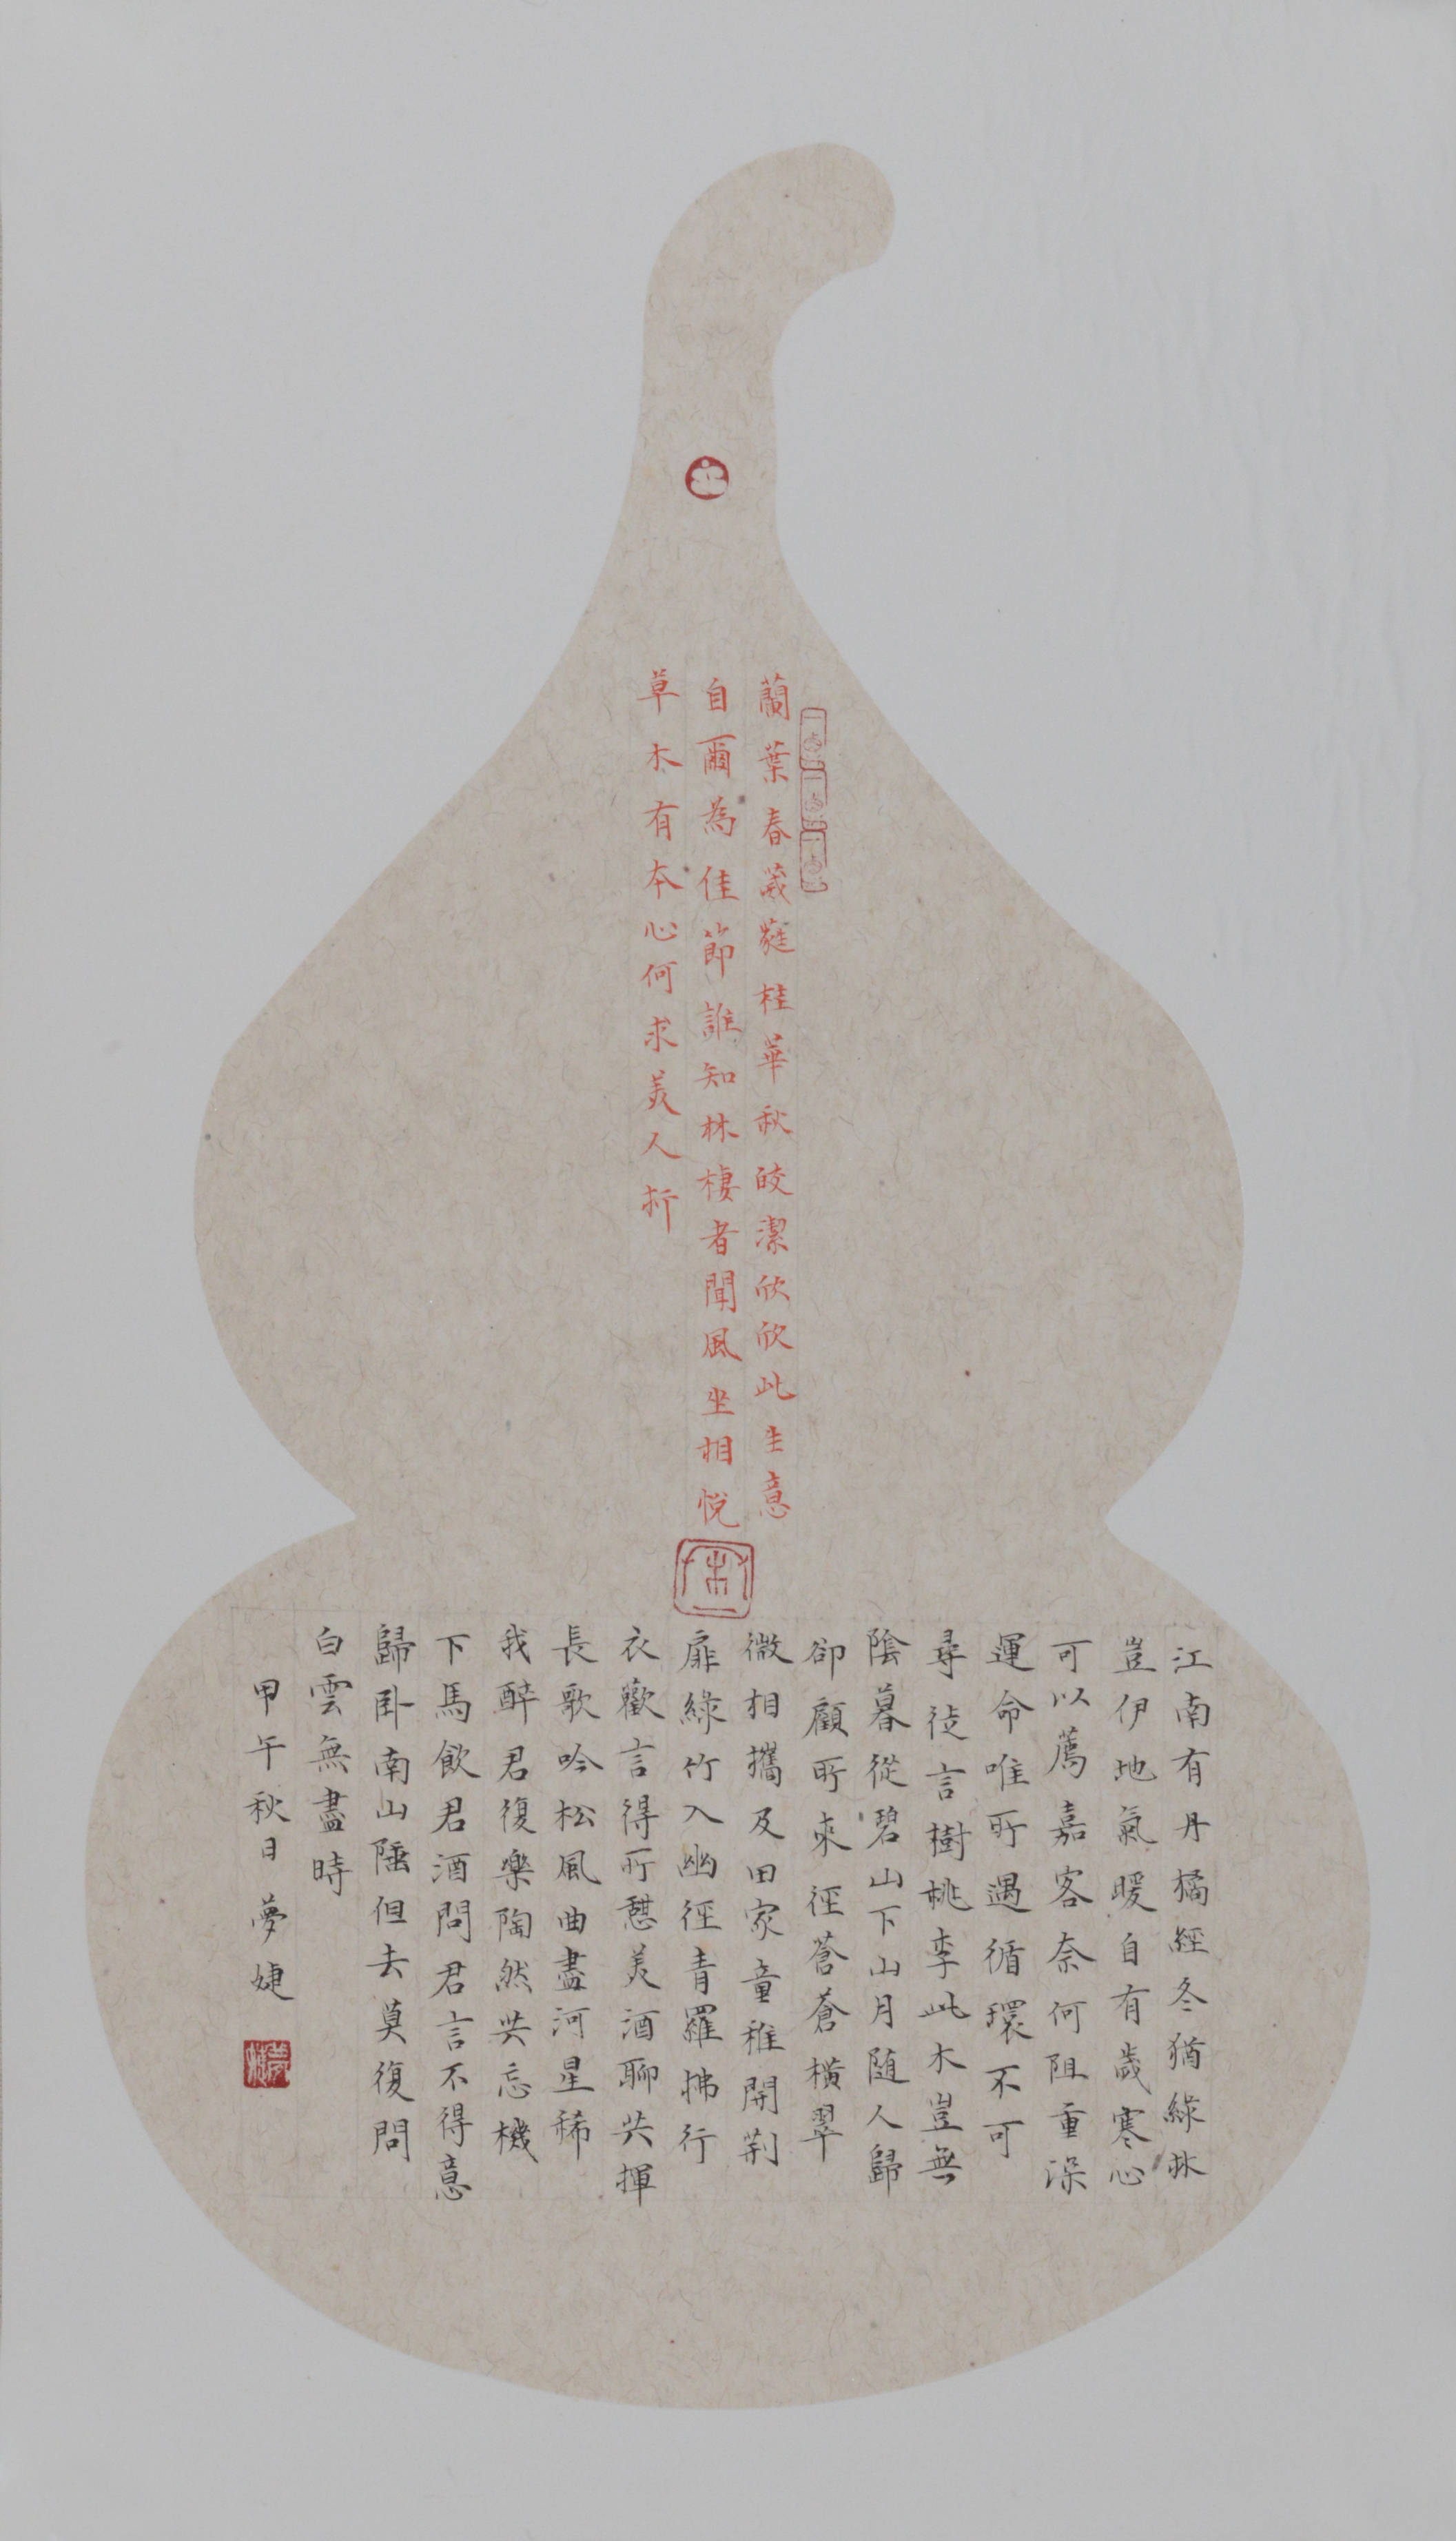 蘭葉春葳蕤桂華秋皎潔欣欣此生意
自爾為佳節誰知林棲者聞風坐相悅
草木有本心何求美人折
江南有丹橘經冬猶綠林
豈伊地氣暖自有歲寒心
可以薦嘉客奈何阻重深
運命唯所遇循環不可
尋徒言樹桃李此木豈無
陰暮從碧山下山月随人歸
卻顧所來徑蒼蒼橫翠
微相攜及田家童稚開荊
扉綠竹入幽徑青羅拂行
衣歡言得所憩美酒聊共揮
長歌吟松風曲盡河星稀
我醉君復樂陶然共忘機
下馬飲君酒問君言不得意
歸卧南山陲但去莫復問
白雲無盡時
甲午秋日夢婕